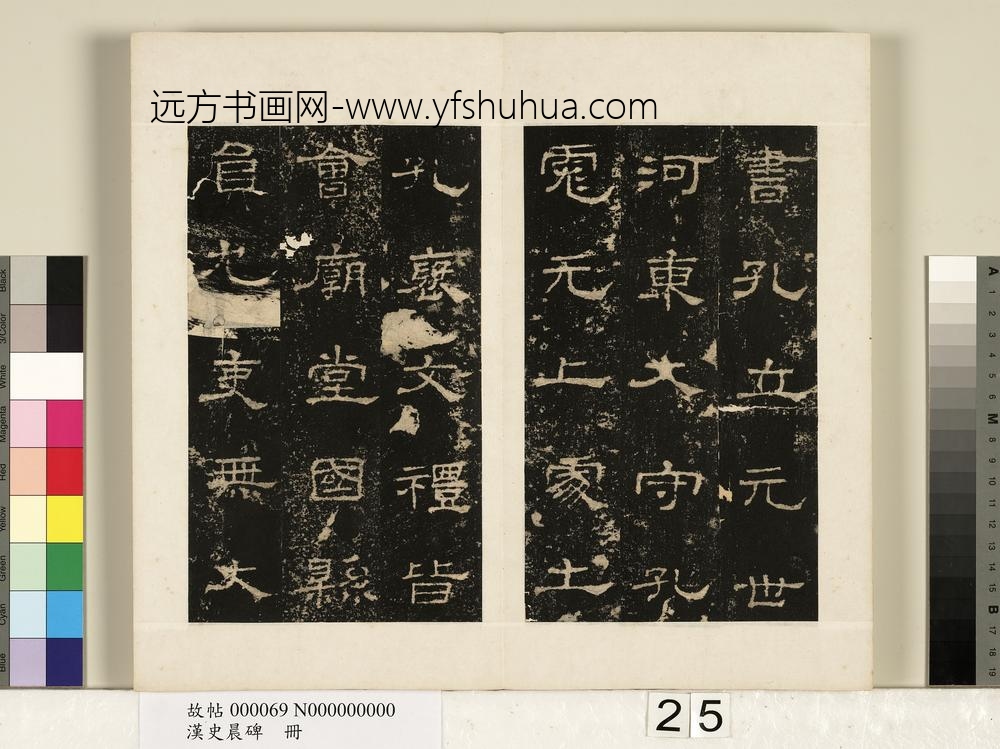 远方书画网-www.yfshuhua.com
書孔立元世
河東大守孔
彪元上處土
孔褒文禮皆
會廟堂國縣
員冗吏無大
故帖 000069 N000000000
漢史晨碑 冊
25
Black
3/Color
White
Magenta
Red
Yellow
Green
Cyan
Blue
A 1 2 3 4 5 6 M 8 9 10 11 12 13 14 15 B 17 18 19